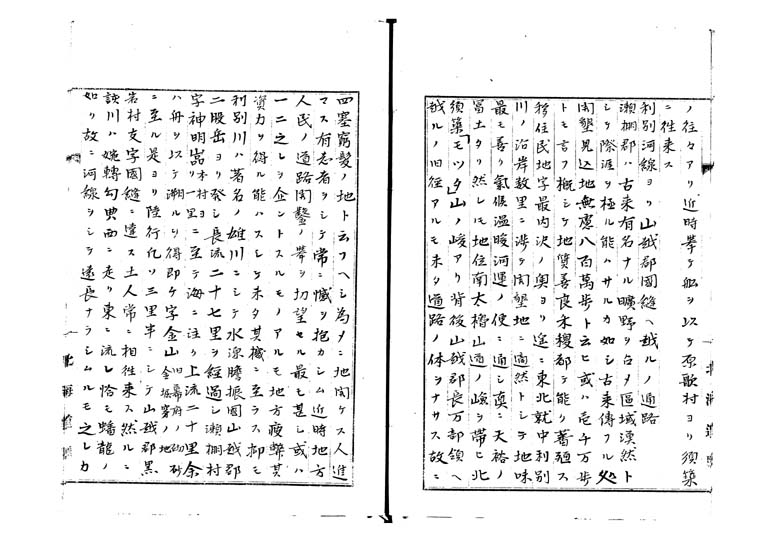 ノ往々アリ近時挙ケ船ヲ以ケ原歌村ヨリ須築
ニ往来ス
利別河線ヨリ山越郡國縫ヘ越ルノ道路
瀬棚郡ハ古来有名ナル曠野ヲ占メ區域漠然ト
シテ際涯ヲ極ル能ハサルカ如シ古来傳フル処
開墾見込地無慮八百萬歩ト云ヒ或ハ壱千万歩
トモ言フ概シテ地質善良禾稷都テ能ク蕃殖ス
移住民地字最内沢ノ奥ヨリ途ニ東北就中利別
川ノ沿岸数里ニ渉テ開墾地ニ適然トシテ地味
最モ善ク氣候温暖河運ノ便ニ通シ真ニ天裕ノ
冨土タリ然レモ地位南太櫓山道ノ嶮ヲ帯ヒ北
須築「モツタ」山ノ峻アリ背後山越郡長万部領ヘ
越ルノ旧径アルモ未タ道路ノ体ヲナサス故ニ
四塞窮髪ノ地ト云フヘシ為ヌニ地開ケス人進
マス有志者ヲシテ常ニ憾ヲ抱カシム近時地方
人民ノ道路開鑿ノ挙ヲ切望セル最モ甚シ或ハ
一二之レヲ企ントスルモノアルモ地方疲弊其
資力ヲ得ル能ハスシテ未タ其機ニ至ラス抑モ
利別川ハ著名ノ雄川ニシテ水源膽振國山越郡
二股岳ヨリ発シ長流二十七里ヲ經過シ瀬棚村
字神明嵓本村ヨリ一里ニ至テ海ニ注ク上流二十里余
ハ舟ヲ以テ溯ルヲ得即ケ字金山旧幕府ノ砂金堀穿ノ地
ニ至ル是ヨリ陸行凡ソ三里半ニシテ山越郡黒
岩村支字國縫ニ達ス土人常ニ相往来ス然ルニ
該川ハ婉轉勾曲西ニ走リ東ニ流レ恰モ蟠龍ノ
如リ故ニ河線ヲシテ遠長ナラシムルモ之レカ